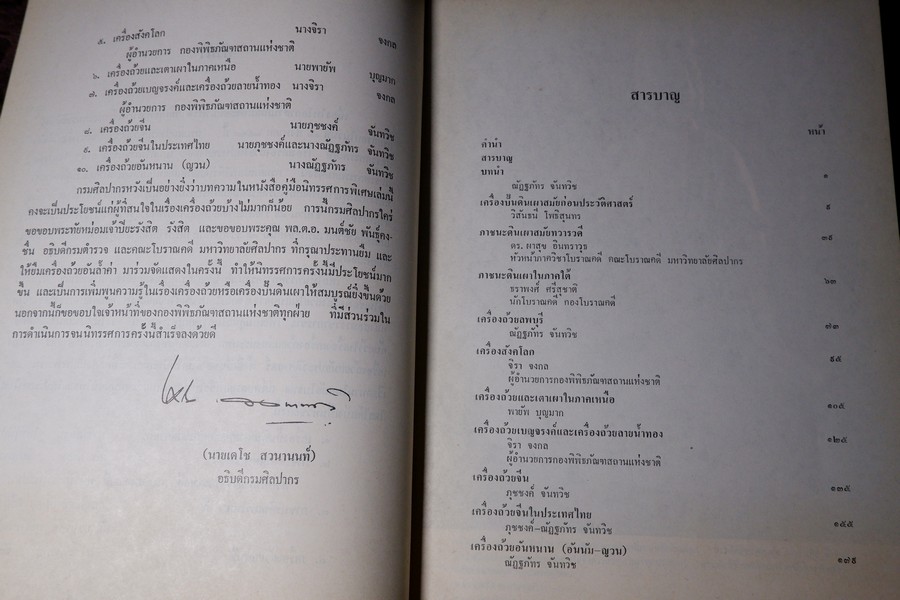 ๕. เครื่องสังคโลก นางจิรา จงกล
ผู้อำนวยการ กองพิพิธภัณฑสถานแห่งชาติ
๖. เครื่องถ้วยและเตาเผาในภาคเหนือ นายพายัพ บุญมาก
๗. เครื่องถ้วยเบญจรงค์และเครื่องถ้วยลายน้ำทอง นางจิรา จงกล
ผู้อำนวยการ กองพิพิธภัณฑสถานแห่งชาติ
๘. เครื่องถ้วยจีน นายภุชชงค์ จันทวิช
๙. เครื่องถ้วยจีนในประเทศไทย นายภุชชงค์และนางณัฏฐภัทร จันทวิช
๑๐. เครื่องถ้วยอันหนาน (ญวน) นางณัฏฐภัทร จันทวิช
กรมศิลปากรหวังเป็นอย่างยิ่งว่าบทความในหนังสือคู่มือนิทรรศการพิเศษเล่มนี้
คงจะเป็นประโยชน์แก่ผู้ที่สนใจในเรื่องเครื่องถ้วยบ้างไม่มากก็น้อย การนี้กรมศิลปากรใคร่
ขอขอบพระทัยหม่อมเจ้าปิยะรังสิต รังสิต และขอขอบพระคุณ พล.ต.อ. มนต์ชัย พันธุ์คง-
ชื่น อธิบดีกรมตำรวจ และคณะโบราณคดี มหาวิทยาลัยศิลปากร ที่กรุณาประทานยืม และ
ให้ยืมเครื่องถ้วยอันล้ำค่า มาร่วมจัดแสดงในครั้งนี้ ทำให้นิทรรศการครั้งนี้มีประโยชน์มาก
ขึ้น และเป็นการเพิ่มพูนความรู้ในเรื่องเครื่องถ้วยหรือเครื่องปั้นดินเผาให้สมบูรณ์ยิ่งขึ้นด้วย
นอกจากนี้ก็ขอขอบใจเจ้าหน้าที่ของกองพิพิธภัณฑสถานแห่งชาติทุกฝ่าย ที่มีส่วนร่วมใน
การดำเนินการจนนิทรรศการครั้งนี้สำเร็จลงด้วยดี
(นายเดโช สวนานนท์)
อธิบดีกรมศิลปากร
สารบาญ
หน้า
คำนำ
สารบาญ
บทนำ ๑
ณัฏฐภัทร จันทวิช
เครื่องปั้นดินเผาสมัยก่อนประวัติศาสตร์ ๕
วิสันธนี โพธิสุนทร
ภาชนะดินเผาสมัยทวารวดี ๓๙
ดร. ผาสุข อินทราวุธ
หัวหน้าภาควิชาโบราณคดี คณะโบราณคดี มหาวิทยาลัยศิลปากร
ภาชนะดินเผาในภาคใต้ ๖๓
ธราพงศ์ ศรีสุชาติ
นักโบราณคดี กองโบราณคดี
เครื่องถ้วยลพบุรี ๗๓
ณัฏฐภัทร จันทวิช
เครื่องสังคโลก ๙๕
จิรา จงกล
ผู้อำนวยการกองพิพิธภัณฑสถานแห่งชาติ
เครื่องถ้วยและเตาเผาในภาคเหนือ ๑๐๕
พายัพ บุญมาก
เครื่องถ้วยเบญจรงค์และเครื่องถ้วยลายน้ำทอง ๑๒๕
จิรา จงกล
ผู้อำนวยการกองพิพิธภัณฑสถานแห่งชาติ
เครื่องถ้วยจีน ๑๓๕
ภุชชงค์ จันทวิช
เครื่องถ้วยจีนในประเทศไทย ๑๕๕
ภุชชงค์-ณัฏฐภัทร จันทวิช
เครื่องถ้วยอันหนาน (อันนัม-ญวน) ๑๗๙
ณัฏฐภัทร จันทวิช